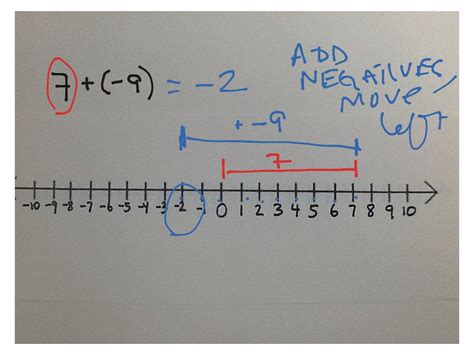 7 + (-9) = -2
ADD
NEGATIVES,
MOVE
left
+ -9
7
-10 -9 -8 -7 -6 -5 -4 -3 -2 -1 0 1 2 3 4 5 6 7 8 9 10